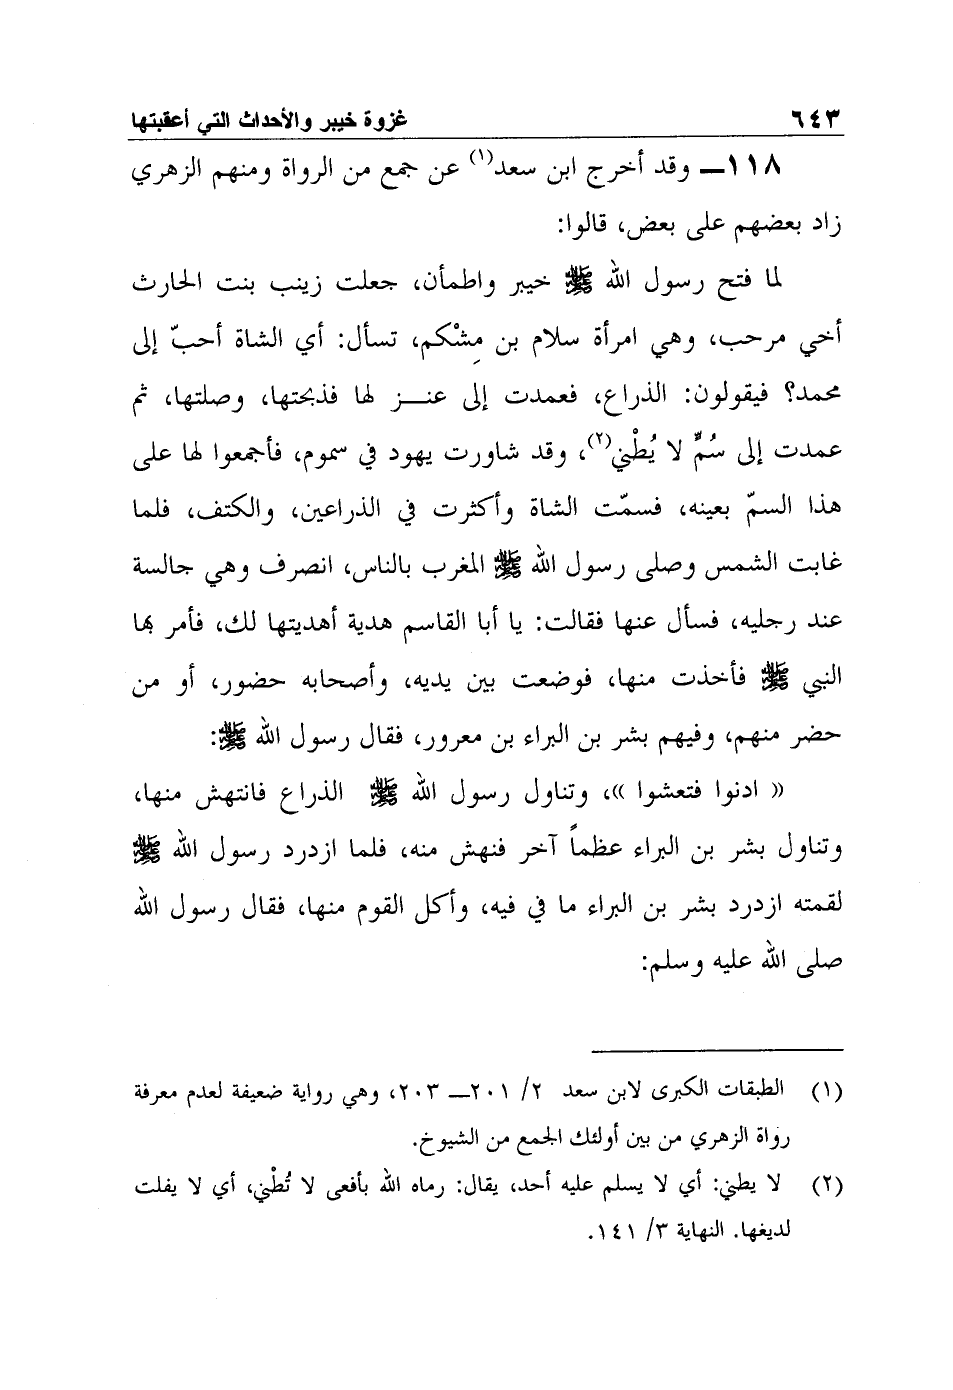 ٦٤٣ غزوة خيبر والأحداث التي أعقبتها
١١٨ـ وقد أخرج ابن سعد(١) عن جمع من الرواة ومنهم الزهري
زاد بعضهم على بعض، قالوا:
لما فتح رسول الله ﷺ خيبر واطمأن، جعلت زينب بنت الحارث
أخي مرحب، وهي امرأة سلام بن مِشْكم، تسأل: أي الشاة أحبّ إلى
محمد؟ فيقولون: الذراع، فعمدت إلى عنـز لها فذبحتها، وصلتها، ثم
عمدت إلى سُمٍّ لا يُطْني(٢)، وقد شاورت يهود في سموم، فأجمعوا لها على
هذا السمّ بعينه، فسمّت الشاة وأكثرت في الذراعين، والكتف، فلما
غابت الشمس وصلى رسول الله ﷺ المغرب بالناس، انصرف وهي جالسة
عند رجليه، فسأل عنها فقالت: يا أبا القاسم هدية أهديتها لك، فأمر بها
النبي ﷺ فأخذت منها، فوضعت بين يديه، وأصحابه حضور، أو من
حضر منهم، وفيهم بشر بن البراء بن معرور، فقال رسول الله ﷺ:
« ادنوا فتعشوا »، وتناول رسول الله ﷺ الذراع فانتهش منها،
وتناول بشر بن البراء عظماً آخر فنهش منه، فلما ازدرد رسول الله ﷺ
لقمته ازدرد بشر بن البراء ما في فيه، وأكل القوم منها، فقال رسول الله
صلى الله عليه وسلم:
(١) الطبقات الكبرى لابن سعد ٢/ ٢٠١ـ ٢٠٣، وهي رواية ضعيفة لعدم معرفة
رواة الزهري من بين أولئك الجمع من الشيوخ.
(٢) لا يطني: أي لا يسلم عليه أحد، يقال: رماه الله بأفعى لا تُطْني، أي لا يفلت
لديغها. النهاية ٣/ ١٤١.